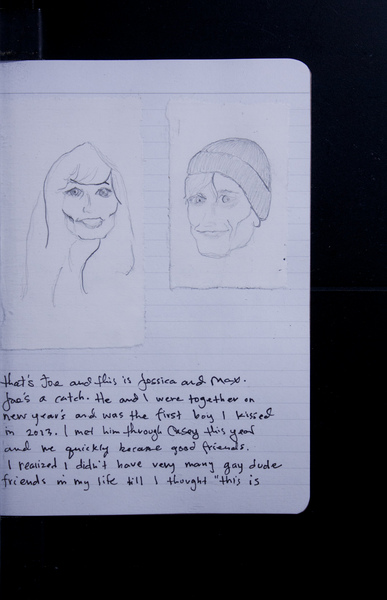 that's Joe and this is Jessica and Max.
Joe's a catch. He and I were together on
new year's and was the first boy I kissed
in 2013. I met him through Casey this year
and we quickly became good friends.
I realized I didn't have very many gay dude
friends in my life till I thought "this is